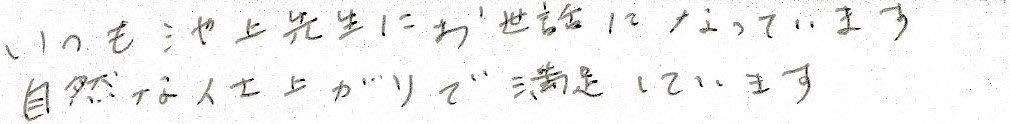 いつも池上先生にお世話になっています
自然な仕上がりで満足しています